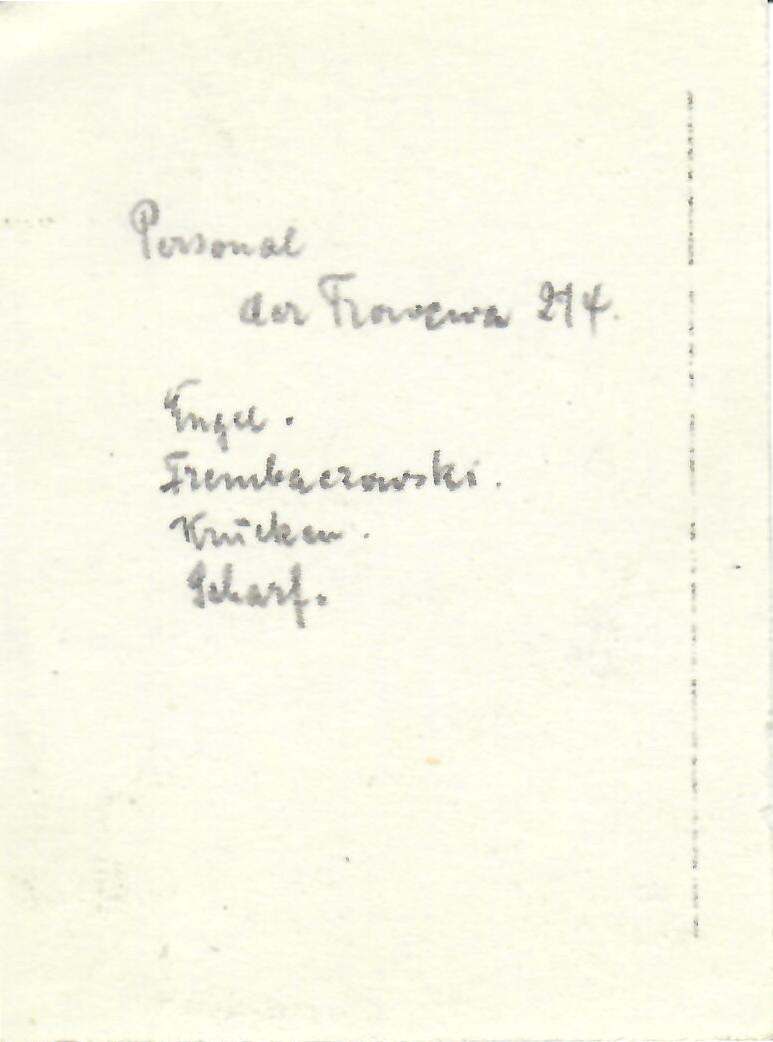 Personal
der Frowewa 214.
Engel.
Frembaczowski.
Krücken.
Scharf.